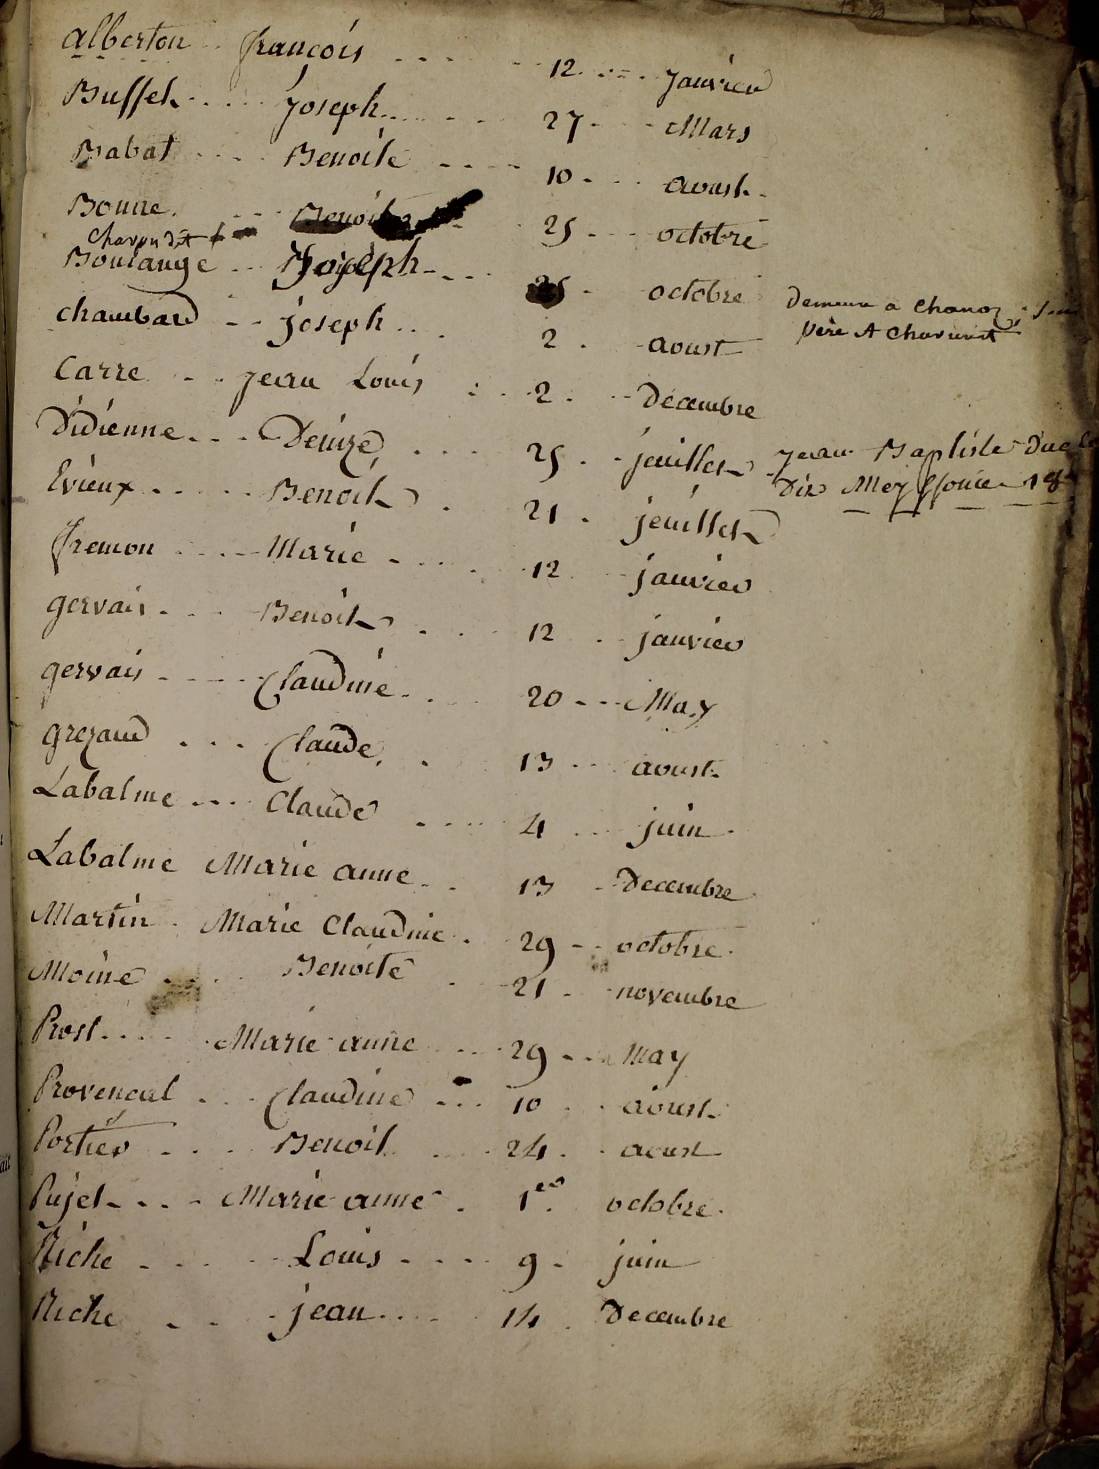 alberton françois 12 janvier
Buffet joseph 27 Mars
Babat Benoite 10 aoust
Bonne 25 octobre
Boulange Joseph 25 octobre Demeure a Chanoz
chambard joseph 2 aoust père A Charverat
Carre jean Louis 2 Decembre
Didienne Denize 25 jeuillet jean Baptiste
Evieux Benoit 21 jeuillet Dix
fremon Marie 12 janvier
gervais Benoit 12 janvier
gervais Claudine 20 May
grezaud Claude 13 aoust
Labalme Claude 4 juin
Labalme Marie anne 13 Decembre
Martin Marie Claudine 29 octobre
Moine Benoite 21 novembre
Prost Marie anne 29 May
Provencal Claudine 10 aoust
Portier Benoit 24 aoust
Pujet Marie anne 1er octobre
Riche Louis 9 juin
Riche jean 14 Decembre